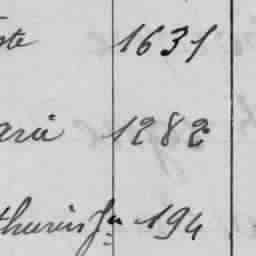 ste 1631
arie 1282
thurin fn 194